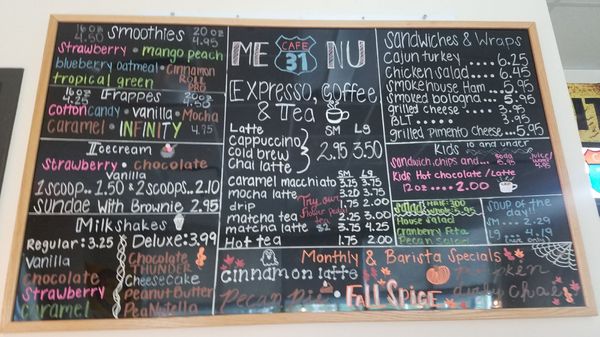 16 oz Smoothies 20 oz
4.50 4.95
Strawberry • mango peach
blueberry oatmeal • Cinnamon
ROLL
PRO
tropical green
16oz Frappes 20oz
4.25
Cotton candy • vanilla • Mocha
Caramel • INFINITY 4.75
Icecream
Strawberry • Chocolate
Vanilla
1 scoop.. 1.50 & 2 scoops.. 2.10
Sundae with Brownie 2.95
Milkshakes
Regular: 3.25 Deluxe: 3.99
Vanilla
Chocolate
Strawberry
Caramel
Chocolate
THUNDER
Cheesecake
Peanut Butter
Pea Nutella
ME CAFE 31 NU
Expresso, Coffee
& Tea
SM LG
Latte
Cappuccino
Cold brew
Chai latte
2.95 3.50
SM LG
caramel macchiato 3.75
mocha latte 3.75
drip
matcha tea 3.00
matcha latte 3.75 4.25
Hot tea 1.75 2.00
Try our
Monthly & Barista Specials
cinnamon latte
Pecan Pie • Fall Spice
pumpkin
dirty Chai
Sandwiches & Wraps
Cajun turkey .... 6.25
Chicken salad .... 6.45
Smokehouse Ham.. 5.95
Smoked bologna... 5.95
grilled cheese .... 3.95
BLT ......... 3.95
grilled Pimento Cheese.. 5.95
Kids 10 and under
Sandwich, chips and... Soda
Kids Hot chocolate/Latte
12 oz .... 2.00
Salads
House salad
Cranberry Feta
Pecan Salad
Soup of the
day!!
SM – 2.29
LG – 4.19